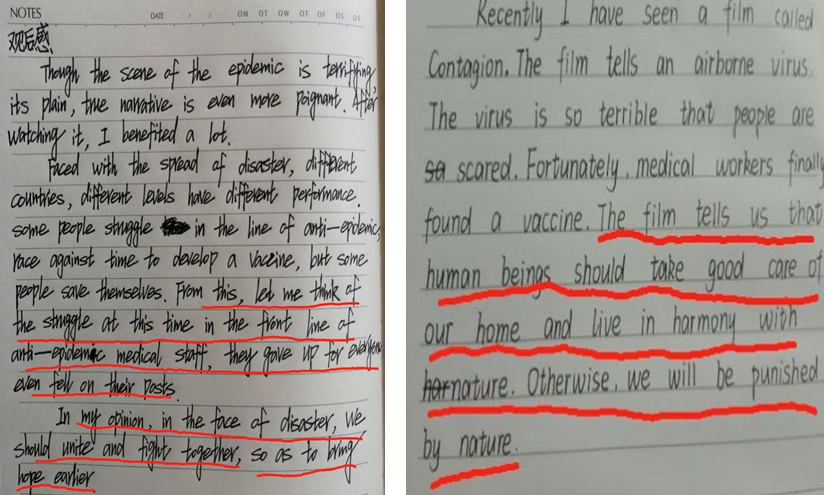 NOTES
DATE / / OM OT OW OT OF OS OS
观后感
Though the scene of the epidemic is terrifying,
its plain, true narrative is even more poignant. After
watching it, I benefited a lot.
Faced with the spread of disaster, different
countries, different levels have different performance.
some people struggle in the line of anti-epidemic,
race against time to develop a vaccine, but some
people save themselves. From this, led me think of
the struggle at this time in the front line of
anti-epidemic medical staff, they gave up for everyone
even fell on their posts.
In my opinion, in the face of disaster, we
should unite and fight together, so as to bring
hope earlier
Recently I have seen a film called
Contagion. The film tells an airborne virus.
The virus is so terrible that people are
sa scared. Fortunately, medical workers finally
found a vaccine. The film tells us that
human beings should take good care of
our home and live in harmony with
har nature. Otherwise, we will be punished
by nature.